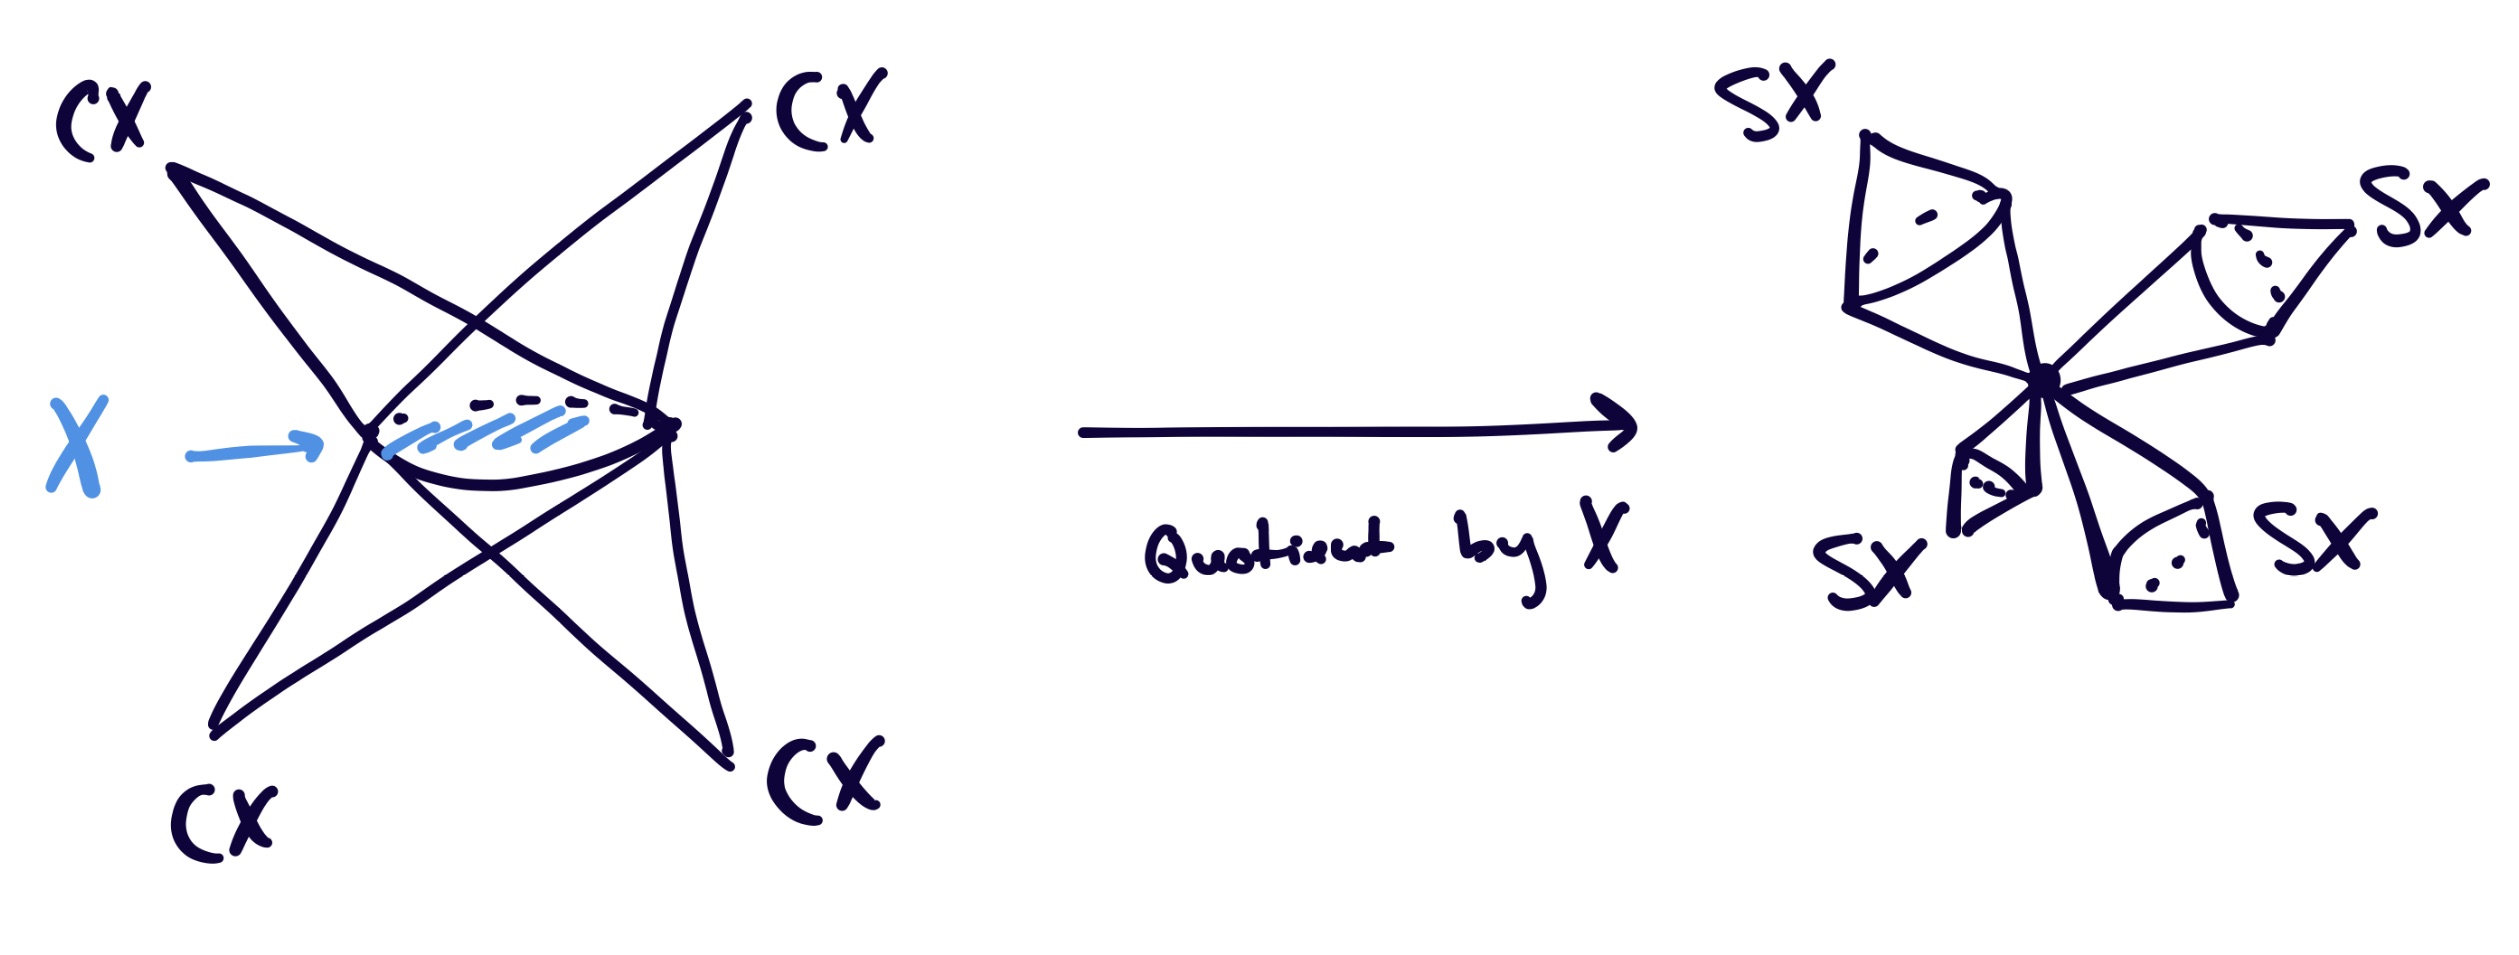 CX
CX
SX
SX
X
Quotient by X
SX
SX
CX
CX